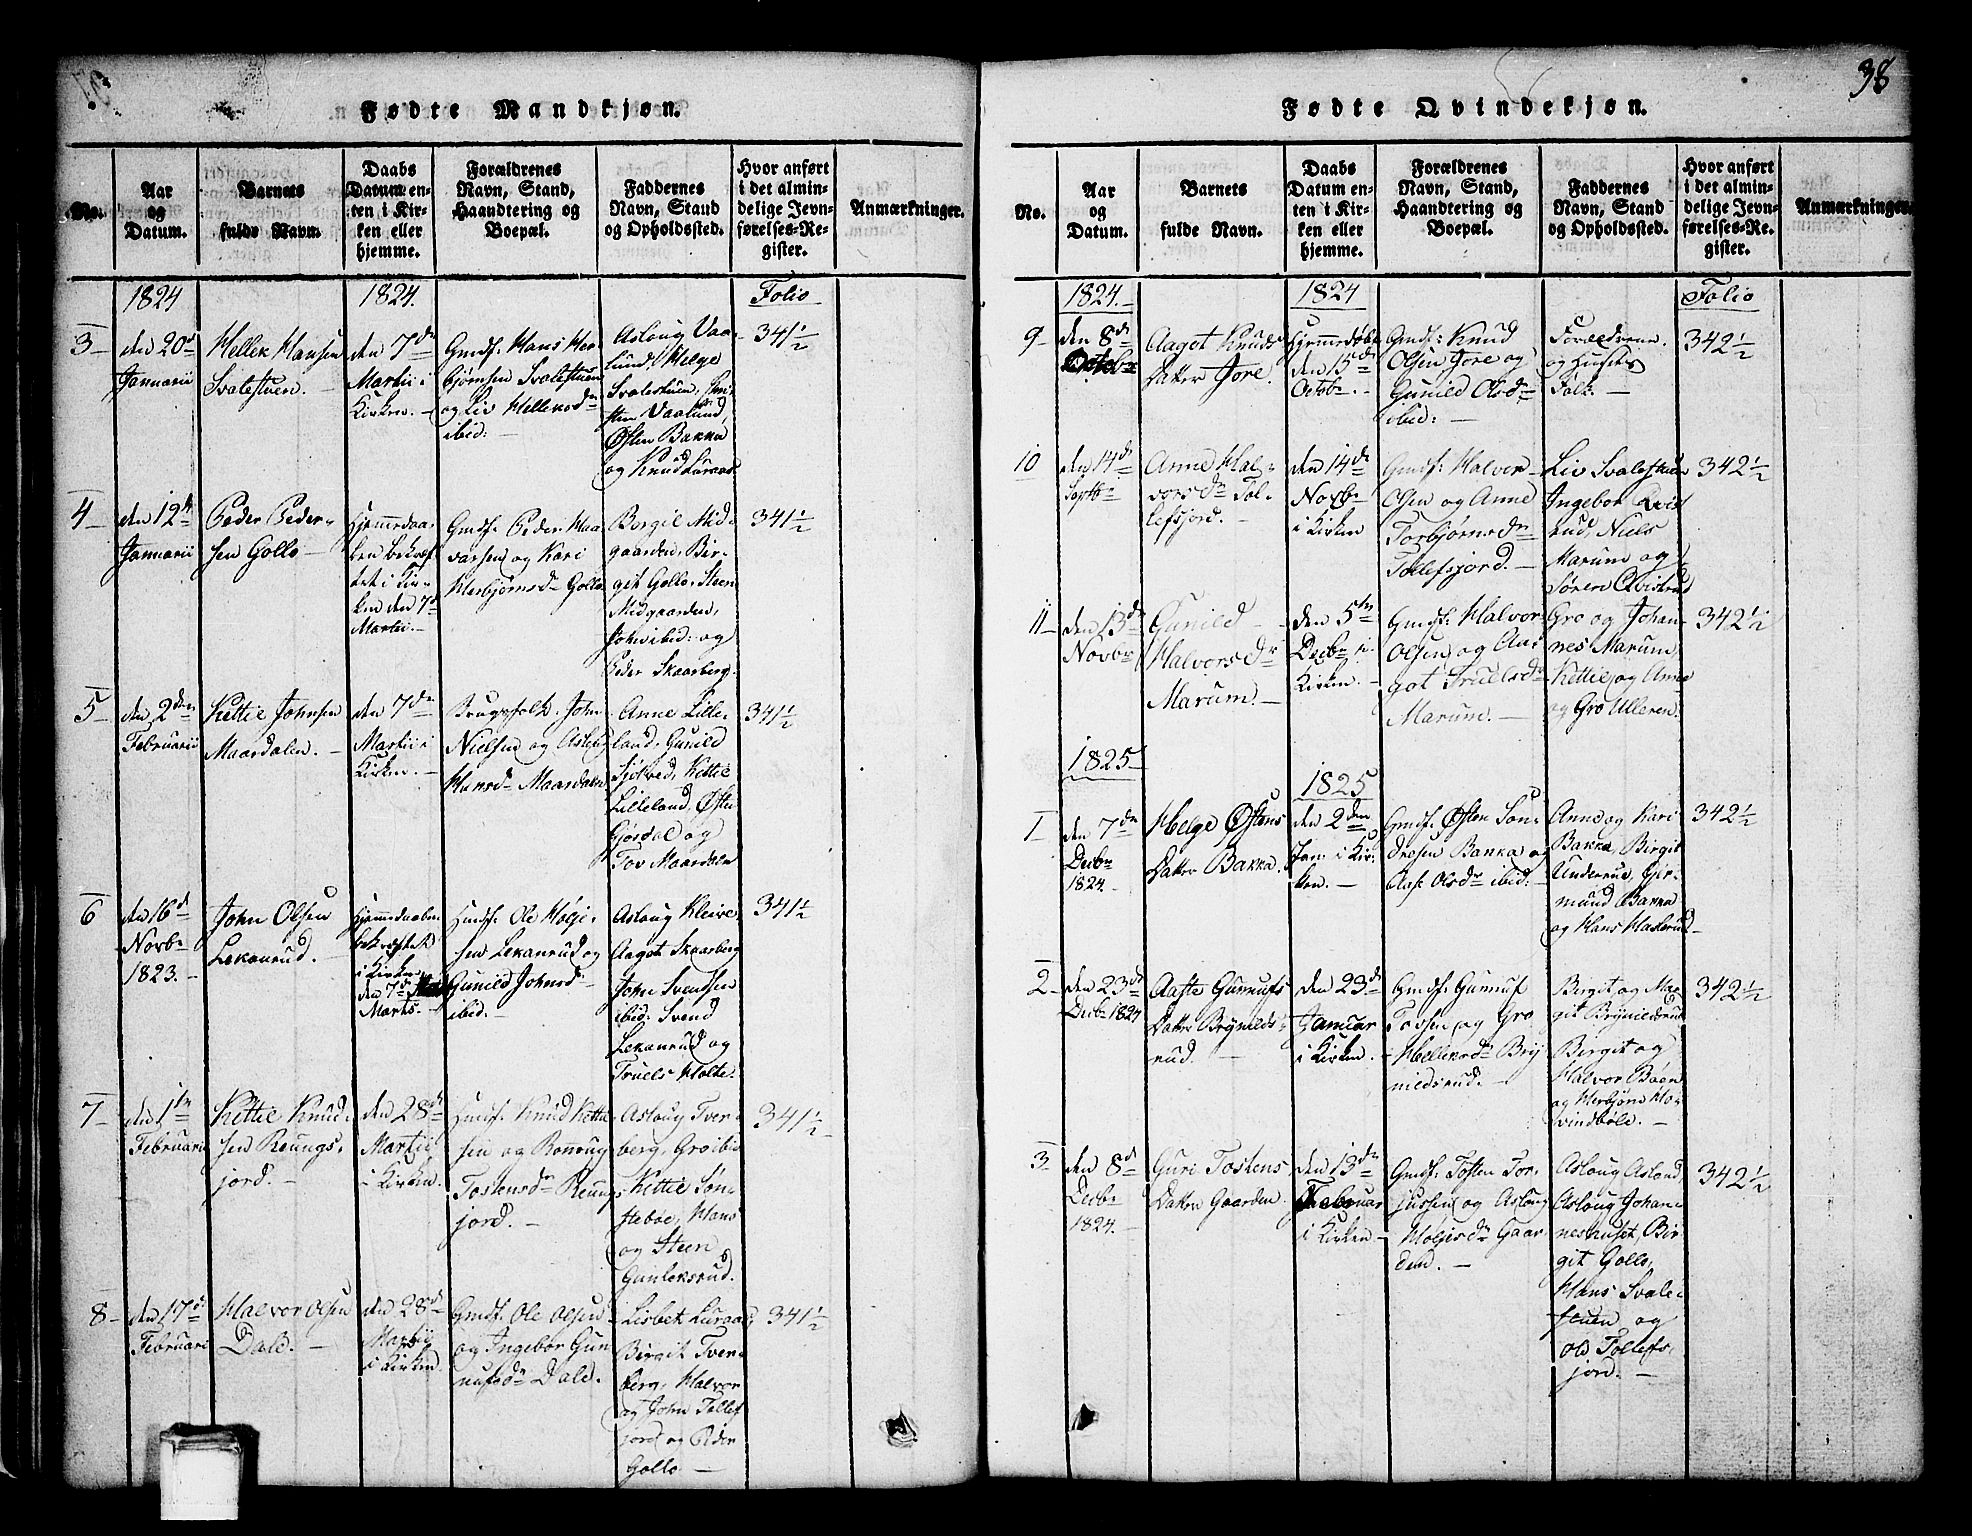 38
Fødte Mandkjøn.
No.
Aar
og
Datum.
Barnets
fulde Navn.
Daabs
Datum en-
ten i Kir-
ken eller
hjemme.
Forældrenes
Navn, Stand,
Haandtering og
Boepæl.
Faddernes
Navn, Stand
og Opholdssted.
Hvor anført
i det almin-
delige Jevn-
førelses-Re-
gister.
Anmærkninger.
1824
1824.
Folio
3
den 20d
Januarii
Hellek Hansen
Svalestuen.
den 7de
Martii i
Kirken.
Gmdf: Hans Her-
bjørnsen Svalestuen
og Liv Helleksdr
ibid:
Aslaug Vaa-
lund, Helge
Svalestuen,
Vaalund,
Østen Bakka
og Knud Luraas
341½
4
den 12te
Januarii
Peder Peder-
sen Gollo
Hjemmedaa-
ben bekræf-
tet i Kir-
ken den 7d
Martii.
Gmdf: Peder Haa-
varsen og Kari
Herbjørnsdr Gollo
Borgil Mid-
gaarden, Bir-
git Gollo, Steen
Midgaarden,
John ibid: og
Peder Skaarberg.
341½
5
den 2den
Februarii
Kettil Johnsen
Maardalen.
den 7de
Martii i
Kirken.
Brugsfolk: John
Nielsen og Aslaug
Hansd Maardalen
Anne Lille-
land, Gunild
Kettil
Lilleland, Østen
Gjørdal og
Tov Maardalen
341½
6
den 16d
Novbr
1823.
John Olsen
Lekanrud.
Hjemmedaaben
bekræftet
i Kirken
den 7de
Marts.
Hmdf: Ole Høljе-
sen Lekanrud og
Gunild Johnsd
ibid.
Aslaug Kleive,
Aagot Skaarberg
John Svensen
ibid: Svend
Lekanrud og
Truels Holte.
341½
7
den 1ste
Februarii
Kettil Knud-
sen Reungs-
jord.
den 28de
Martii
i Kirken.
Hmdf: Knud Kettil-
sen og Ronnug
Tostensdr Reungs-
jord.
Aslaug Tver-
berg, Gro ibid
Kettil Søn-
stebøe, Hans
og Steen
Gunleksrud.
341½
8
den 17d
Februarii
Halvor Olsen
Dale.
den 28de
Martii
i Kirken.
Gmdf: Ole Olsen
og Ingebor Gun-
nufsdr Dale.
Lisbet Luraas,
Birgit Tver-
berg, Halvor
og John Tollefs-
jord og Peder
Gollo.
341½
Fødte Qvindekjøn.
No.
Aar
og
Datum.
Barnets
fulde Navn.
Daabs
Datum en-
ten i Kir-
ken eller
hjemme.
Forældrenes
Navn, Stand,
Haandtering og
Boepæl.
Faddernes
Navn, Stand
og Opholdssted.
Hvor anført
i det almin-
delige Jevn-
førelses-Re-
gister.
Anmærkninger.
1824.
1824
Folio
9
den 8de
Octobr
Aagot Knuds
Datter Jore.
Hjemmedøbt
den 15de
Octobr.
Gmdf: Knud
Olsen Jore og
Gunild Olsdr
ibid:
Forældrene
og Husets
Folk.
342½
10
den 14de
Septbr
Anne Hal-
vorsdr Tol-
lefsjord.
den 14de
Novbr
i Kirken
Gmdf: Halvor
Olsen og Anne
Torbjørnsdr
Tollefsjord.
Liv Svalestuen
Ingebor Qvist-
rud, Niels
Marum og
Søren Qvistrud
342½
11
den 13de
Novbr
Gunild
Halvorsdr
Marum.
den 5te
Decbr i
Kirken.
Gmdf: Halvor
Olsen og Aa-
got Truelsdr
Marum.
Gro og Johan-
nes Marum,
Kettil og Anne
og Gro Ulleren.
342½
1825
1825
1
den 7de
Decbr
1824.
Helge Østens
Datter Bakka.
den 2den
Jan: i Kir-
ken.
Gmdf: Østen Son-
dresen Bakka og
Aase Olsdr ibid:
Anne og Kari
Bakka, Birgit
Underrud, Ger-
mund Bakka
og Hans Haslerud
342½
2
den 23de
Decbr 1824
Aaste Gunnufs
Datter Brynilds-
rud.
den 23de
Januar
i Kirken.
Gmdf: Gunnuf
Tovsen og Gro
Helleksdr Bry-
nildsrud.
Birgit og Mar-
git Brynildsrud
Birgit og
Halvor Bøen
og Herbjørn Ho-
vindbøle.
342½
3
den 8d
Decbr
1824.
Guri Tostens
Datter Gaarden.
den 13de
Februar
i Kirken
Gmdf: Tosten Tor-
jussen og Aslaug
Høljesdr Gaar-
den.
Aslaug Asland,
Aslaug Johan-
neshuset, Bir-
git Gollo,
Hans Svale-
stuen og
Ole Tollefs-
jord.
342½